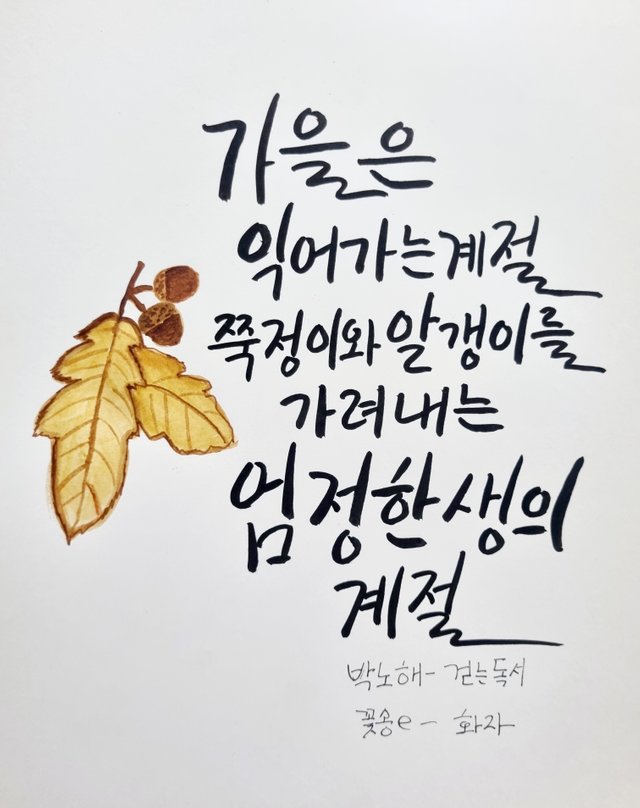 가을은
익어가는 계절
쭉정이와 알갱이를
가려내는
엄정한 생의
계절
박노해- 걷는독서
꽃송e - 화자